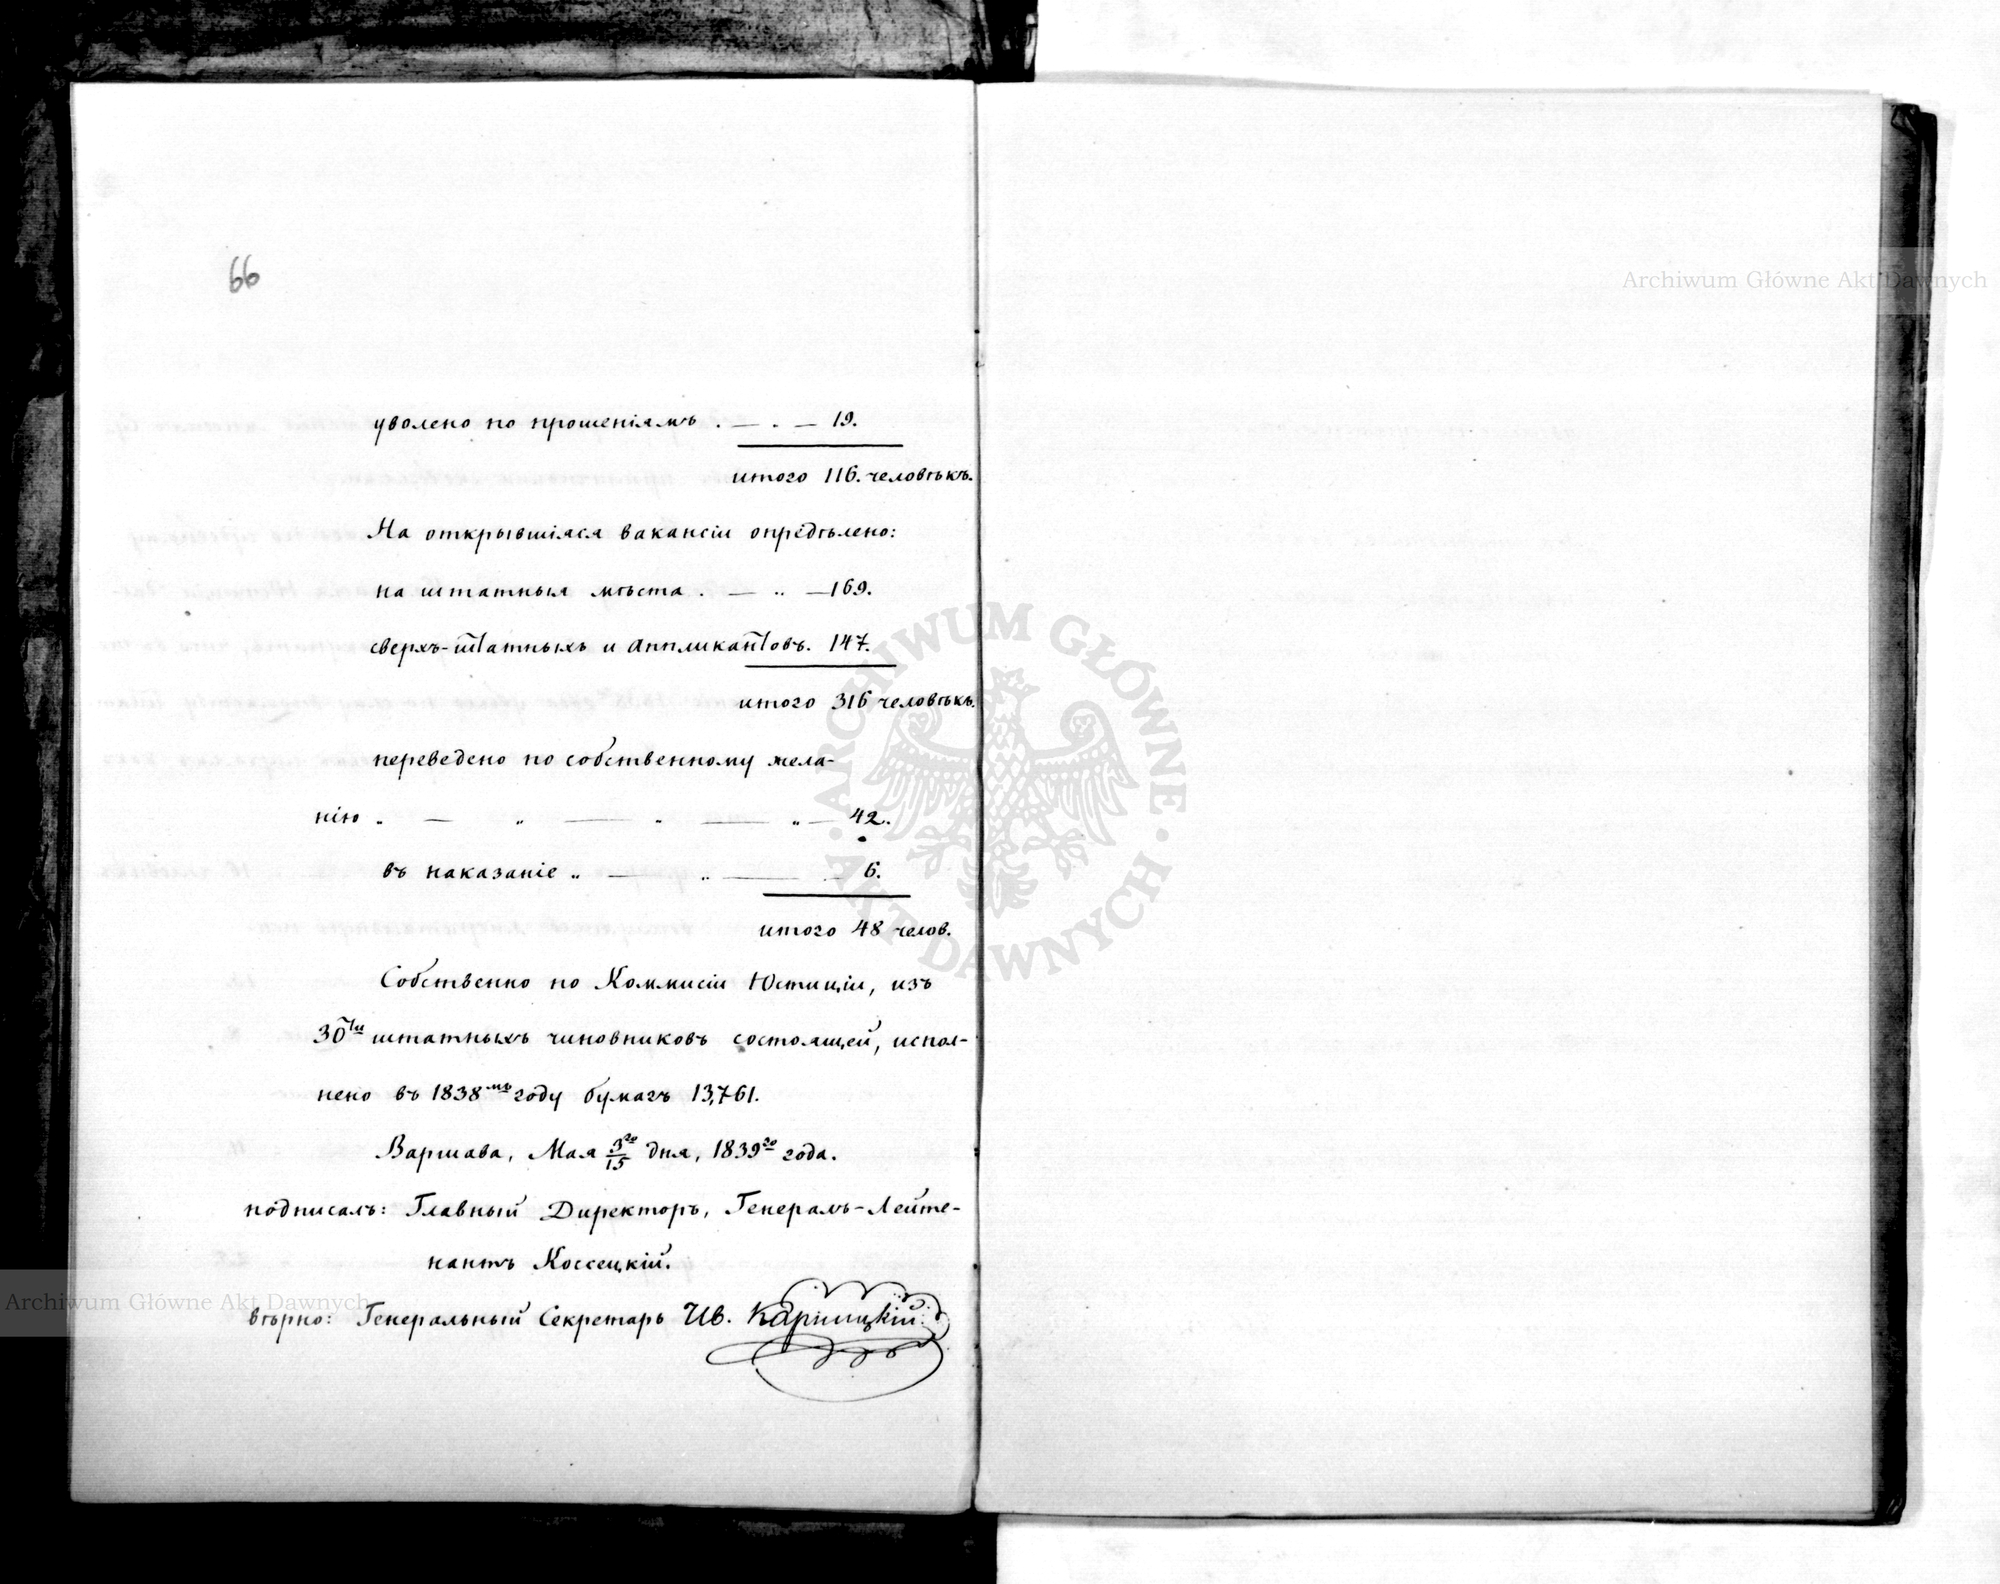 66
уволено по прошеніямъ . — . — 19.
итого 116. человѣкъ.
На открывшіяся вакансіи опредѣлено:
на штатныя мѣста . — „ — 169.
сверхъ-штатныхъ и аппликантовъ. 147.
итого 316 человѣкъ.
переведено по собственному жела-
нію „ — „ — „ — „ — 42.
въ наказаніе „ — „ — 6.
итого 48 челов.
Собственно по Коммисіи Юстиціи, изъ
30ти штатныхъ чиновниковъ состоящей, испол-
нено въ 1838мъ году бумагъ 13,761.
Варшава, Мая 3го/15 дня, 1839го года.
подписалъ: Главный Директоръ, Генералъ-Лейте-
нантъ Коссецкій.
вѣрно: Генеральный Секретарь Ив. Карницкій
Archiwum Główne Akt Dawnych
Archiwum Główne Akt Dawnych
ARCHIWUM GŁÓWNE · AKT DAWNYCH ·